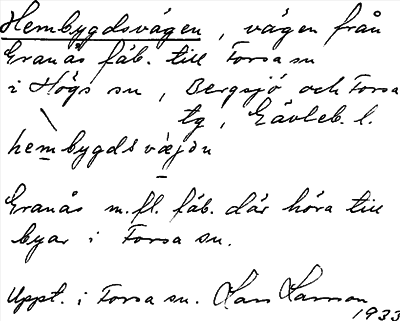 Hembygdsvägen, vägen från
Granås fäb. till Forsa sn
i Högs sn, Bergsjö och Forsa
tg, Gävleb. l.
hembygds
Granås m.fl. fäb. där höra till
byar i Forsa sn.
Uppt. i Forsa sn. Hans Hanson
1933